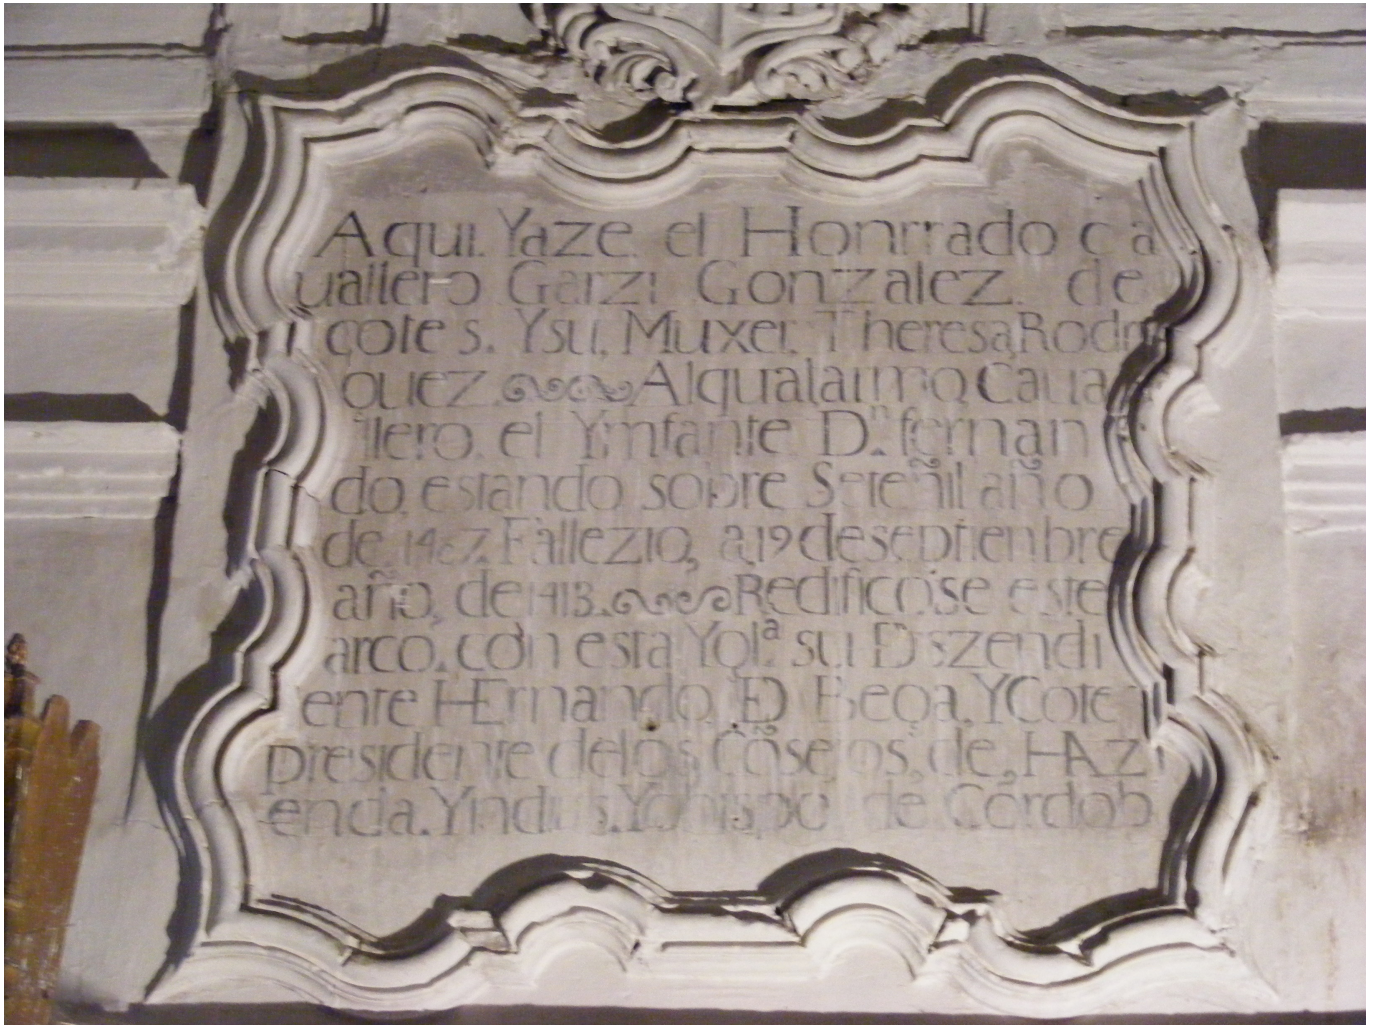 Aqui. Yaze. el Honrrado ca
uallero Garzi Gonzalez. de
cotes. Ysu, Muxer. Theresa, Rodri
guez. Alqual armo, Caua
llero. el Ymfante D.ⁿ fernan
do estando sobre Señil año
de 1407. Fallezio, a, 19 de septienbre
año, de 1413. Redificose este
arco. con esta Yglª su Diszendi
ente HErnando, D Bega. YCotes
presidente delos Cõsejos, de, HAzi
enda. Yndias. Yobispo de Cordob